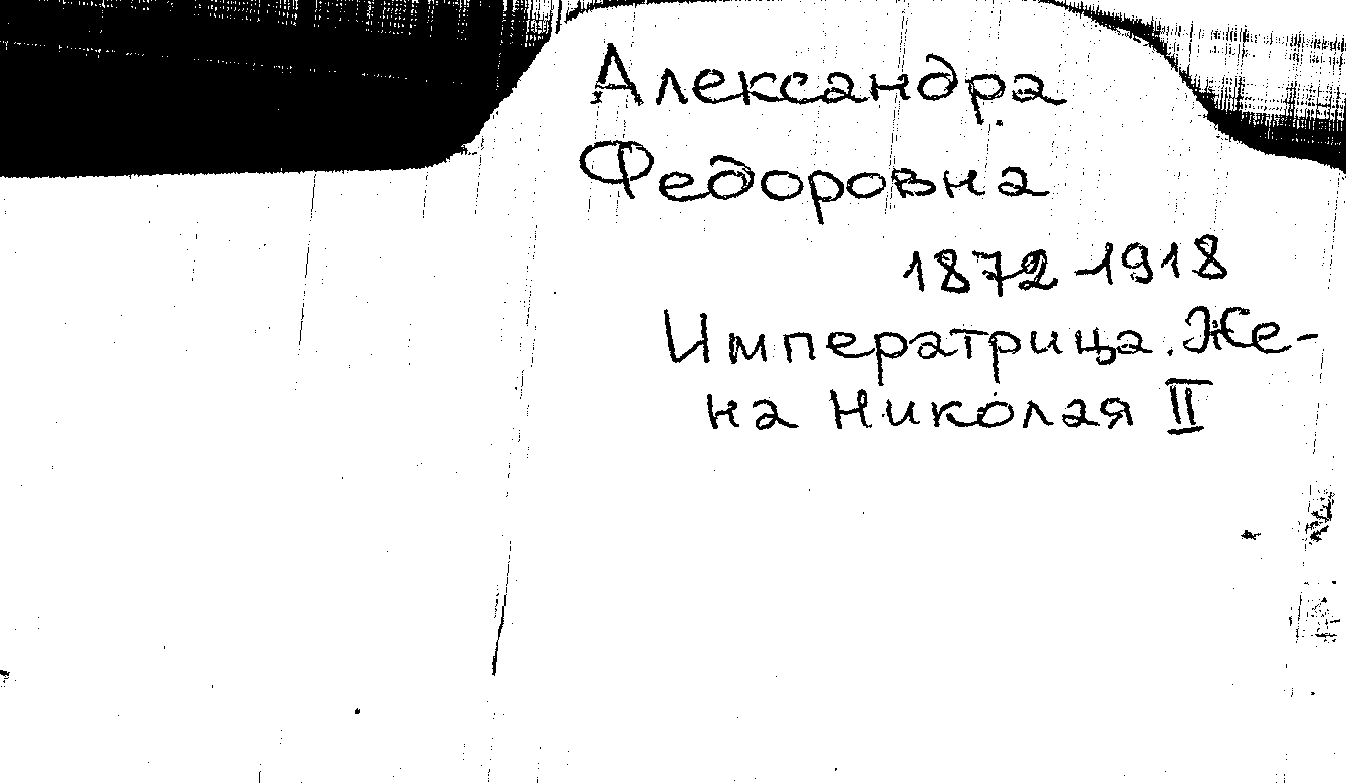 Александра
Федоровна
1872-1918
Императрица. Же-
на Николая II